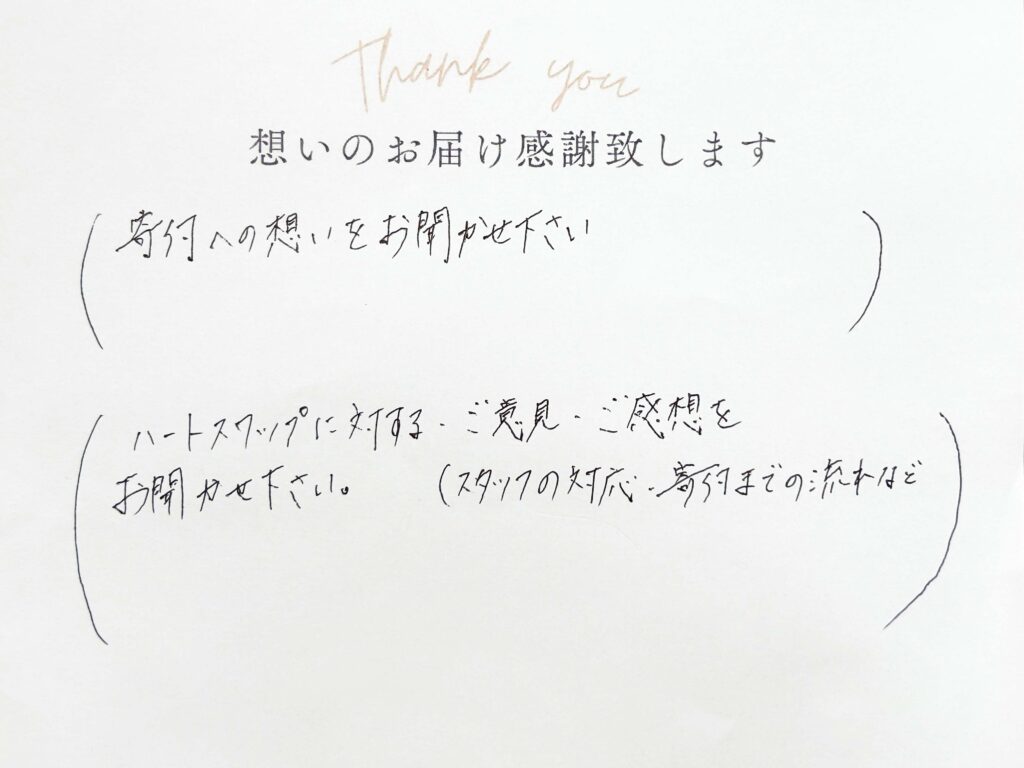 Thank you
想いのお届け感謝致します
寄付への想いをお聞かせ下さい
ハートスワップに対する・ご意見・ご感想を
お聞かせ下さい。 (スタッフの対応・寄付までの流れなど